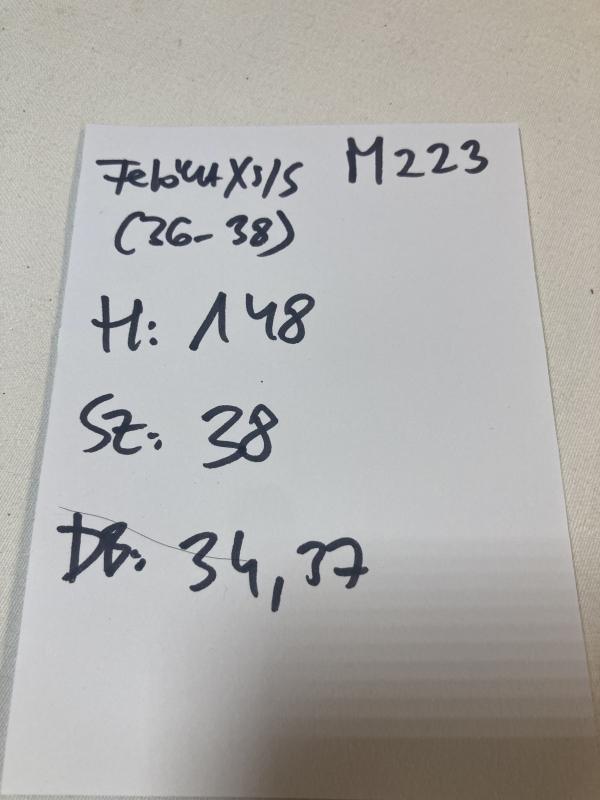 Felőtt XS/S M223
(36-38)
H: 148
SZ: 38
DB: 34, 37